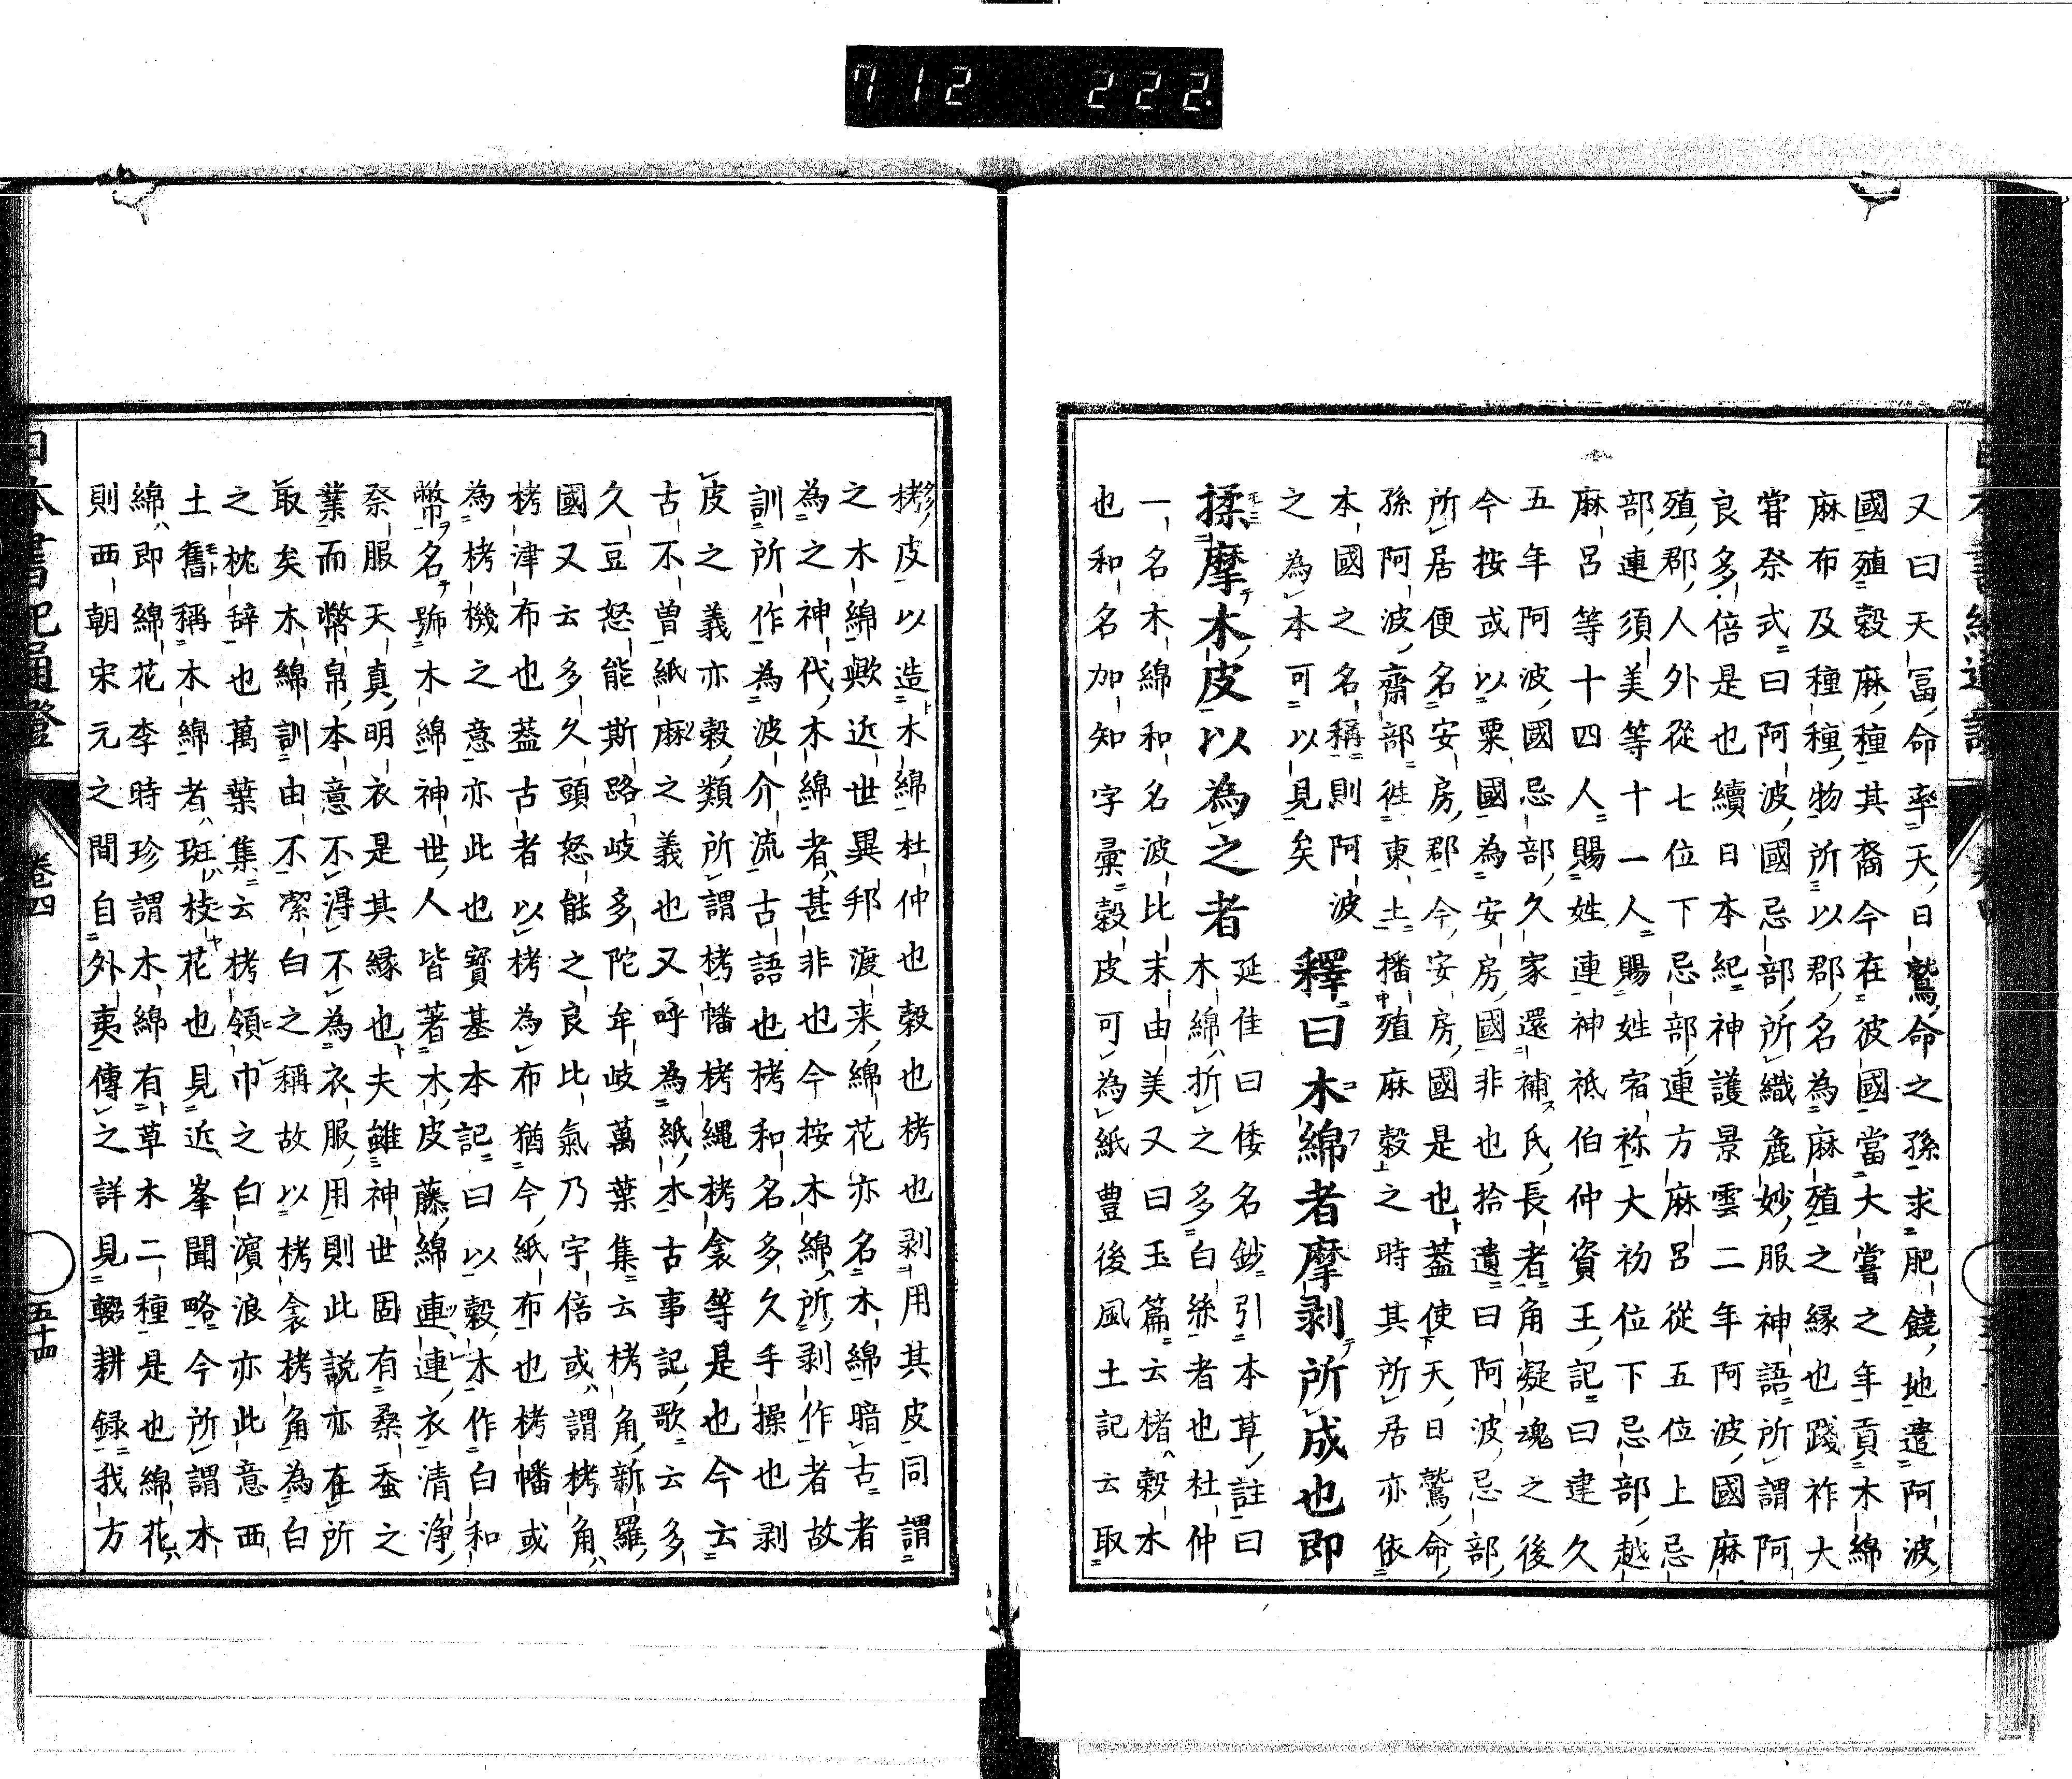 712 222.
又曰天富命率天日鷲命之孫求肥饒地遣阿波
國殖穀麻種其裔今在彼國當大嘗之年貢木綿
麻布及種種物所以郡名為麻殖之緣也踐祚大
嘗祭式曰阿波國忌部所織麁妙服神語所謂阿
良多倍是也續日本紀神護景雲二年阿波國麻
殖郡人外從七位下忌部連方麻呂從五位上忌
部連須美等十一人賜姓宿祢大初位下忌部越
麻呂等十四人賜姓連神祇伯仲資王記曰建久
五年阿波國忌部久家還補氏長者角凝魂之後
今按或以粟國為安房國非也拾遺曰阿波忌部
所居便名安房郡今安房國是也蓋使天日鷲命
孫阿波齋部徃東土播殖麻穀之時其所居亦依
本國之名稱則阿波
之為本可以見矣
釋曰木綿者摩剥所成也即
揉摩木皮以為之者
延佳曰倭名鈔引本草註曰
木綿折之多白絲者也杜仲
一名木綿和名波比末由美又曰玉篇云楮穀木
也和名加知字彙穀皮可為紙豊後風土記云取
栲皮以造木綿杜仲也穀也栲也剥用其皮同謂
之木綿歟近世異邦渡来綿花亦名木綿暗古者
為之神代木綿者甚非也今按木綿所剥作者故
訓所作為波介流古語也栲和名多久手操也剥
皮之義亦穀類所謂栲幡栲縄栲衾等是也今云
古不曾紙麻之義也又呼為紙木古事記歌云多
久豆怒能斯路岐多陀牟岐萬葉集云栲角新羅
國又云多久頭怒能之良比氣乃宇倍或謂栲角
栲津布也蓋古者以栲為布猶今紙布也栲幡或
為栲機之意亦此也寶基本記曰以穀木作白和
幣名號木綿神世人皆著木皮藤綿連連衣清浄
祭服天真明衣是其緣也夫雖神世固有桑蚕之
業而幣帛本意不得不為衣服用則此説亦在所
取矣木綿訓由不潔白之稱故以栲衾栲角為白
之枕辞也萬葉集云栲領巾之白濱浪亦此意西
土舊稱木綿者斑枝花也見近峯聞略今所謂木
綿即綿花李時珍謂木綿有草木二種是也綿花
則西朝宋元之間自外夷傳之詳見輟耕録我方
日本書紀通證
卷四
五十四